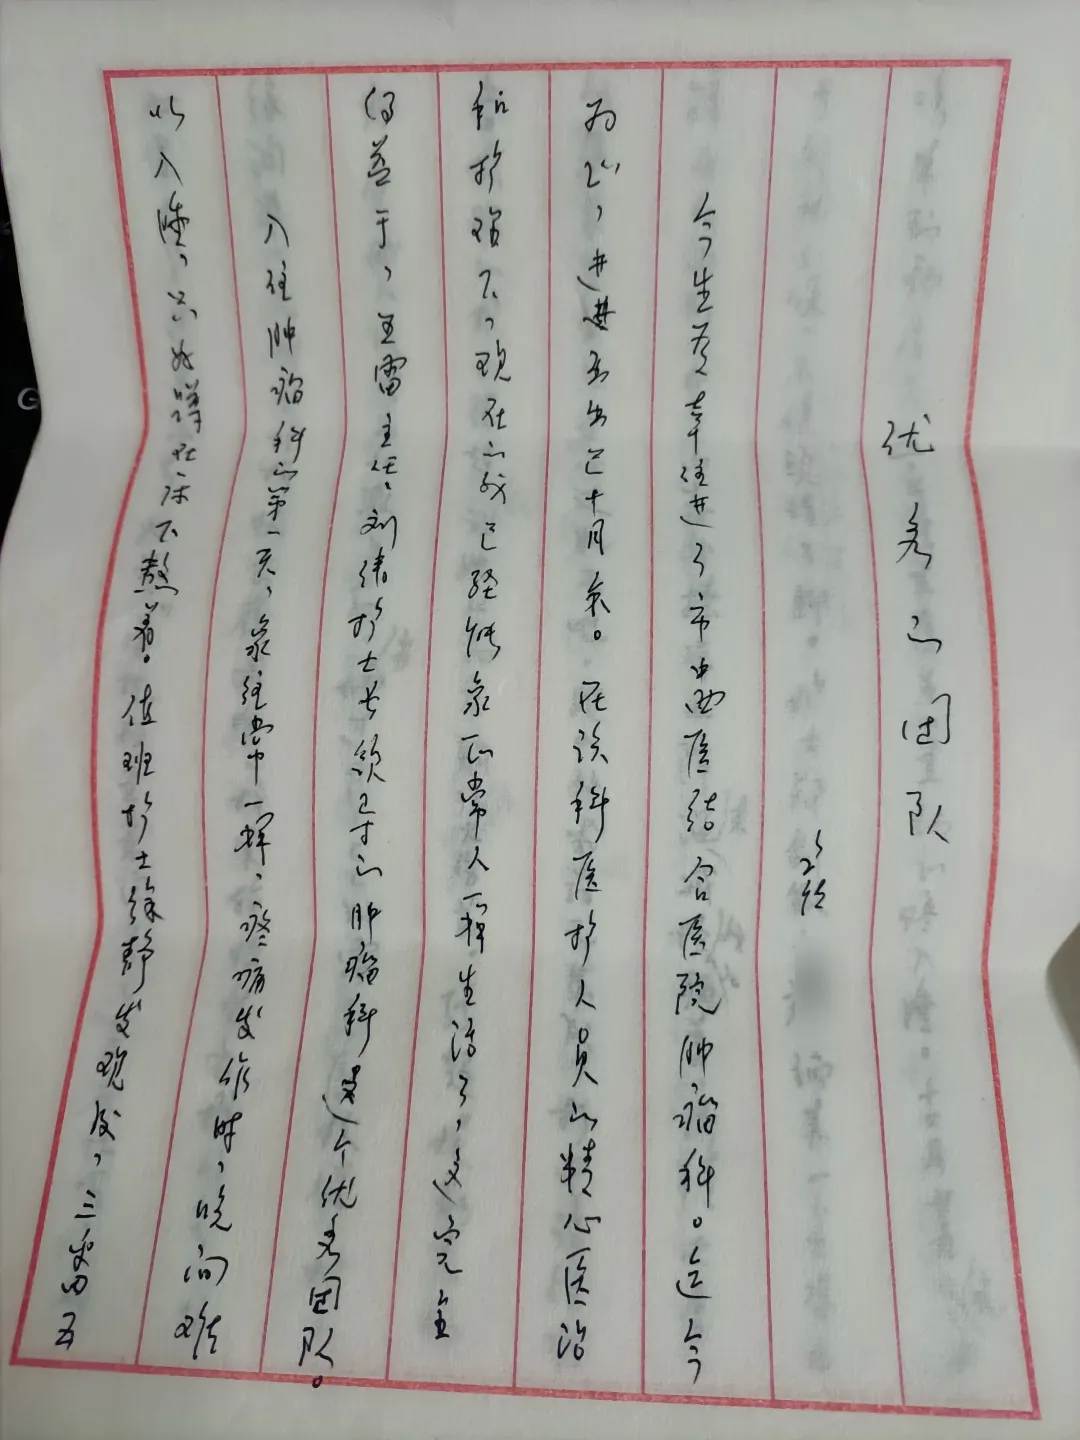 优秀的团队
今生有幸住进了市中西医结合医院肿瘤科。迄今
为止，进进出出已十月余。在该科医护人员的精心医治
和护理下，现在的我已经能象正常人一样生活了，这完全
得益于，王雷主任、刘倩护士长领导的肿瘤科这个优秀团队。
入住肿瘤科的第一天，象往常一样，疼痛发作时，晚间难
以入睡，只好蹲在床下熬着。值班护士徐静发现后，三番五